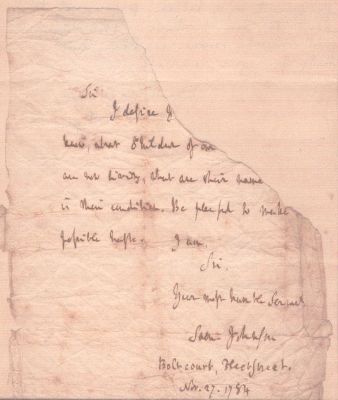 Sir
I desire y
know, what Children of our
are now living, what are their name
is their condition. Be pleased to make
possible haste. I am,
Sir,
Your most humble Servant
Sam: Johnson
Bolt court, Fleetstreet.
Nov. 27. 1784